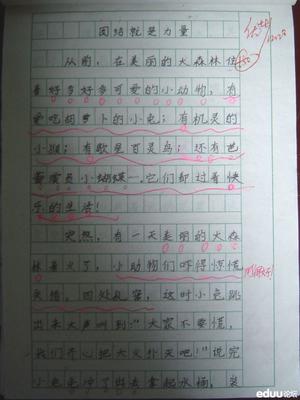 团结就是力量
从前，在美丽的大森林住
着好多好多可爱的小动物，有
爱吃胡萝卜的小兔；有机灵的
小猴；有歌星百灵鸟；还有芭
蕾演员小蝴蝶…它们都过着快
乐的生活！
突然，有一天美丽的大森
林着火了，小动物们吓得惊慌
失措，四处乱窜，这时小兔跳
出来大声叫到："大家不要慌，
我们齐心把大火扑灭吧！"说完
小兔 冲了 去拿起水桶，装
eduu论坛